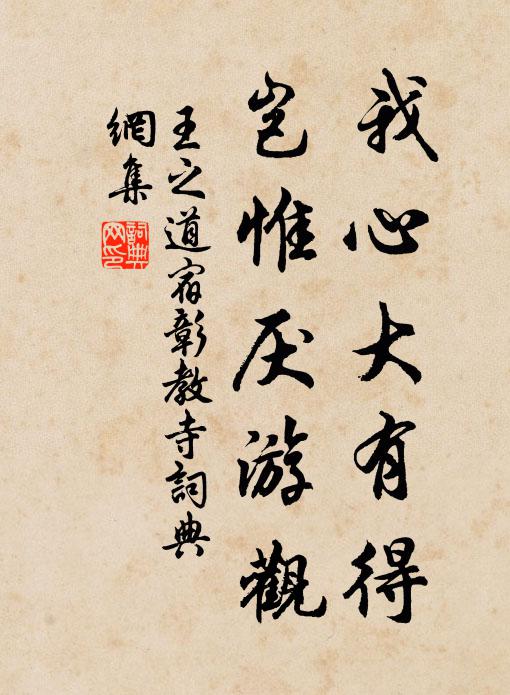 我心大有得
岂惟厌游觀
王之道宿彰教寺詞典
網集
詞典
网印